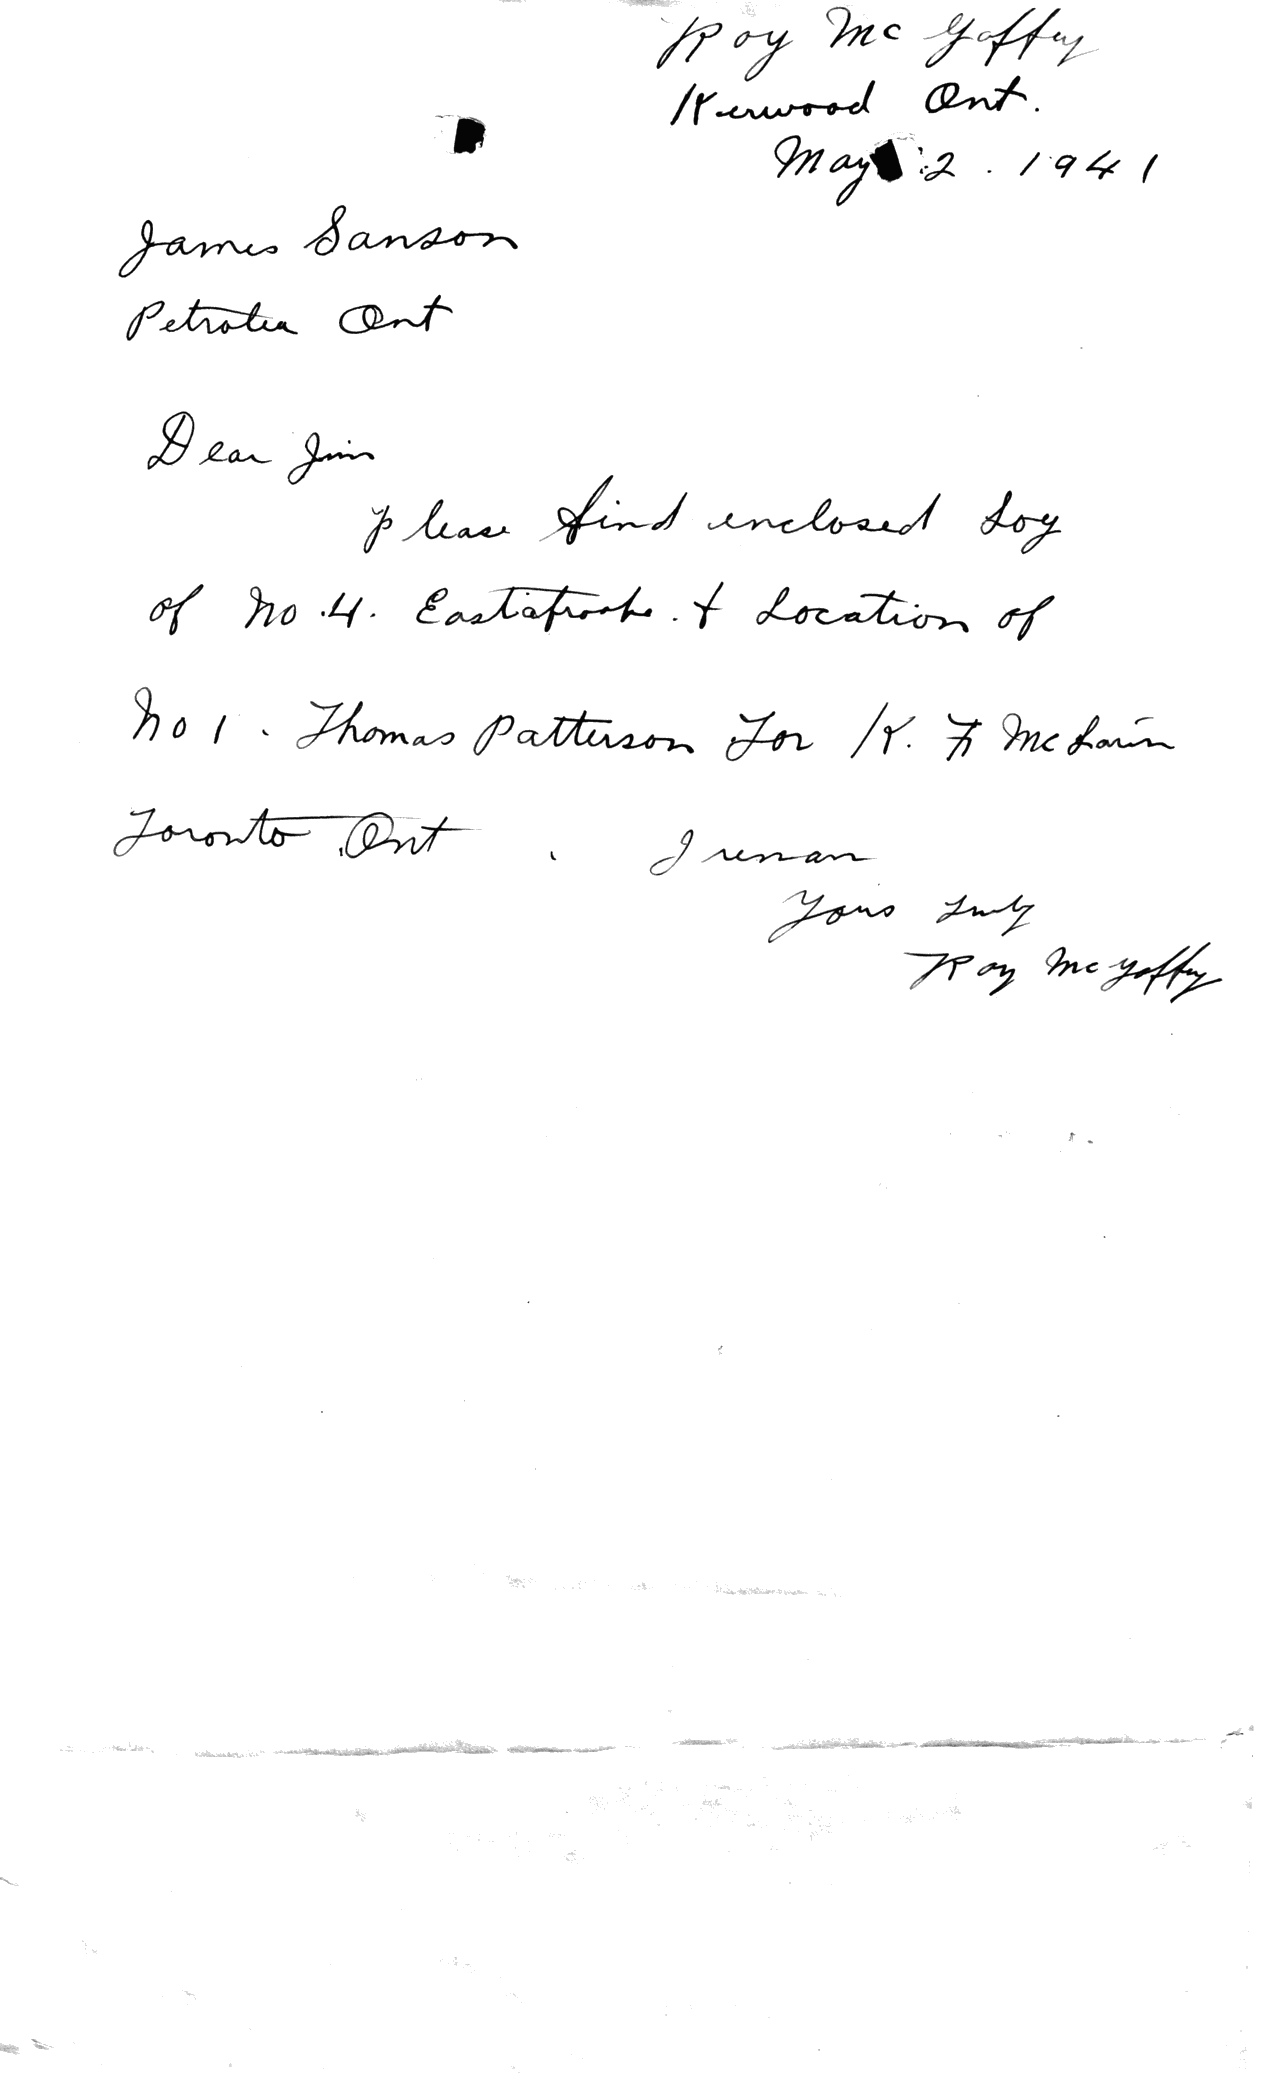 Roy Mc Gaffey
Kerwood Ont.
May 2. 1941
James Sanson
Petrolea Ont
Dear Jim
please find enclosed Log
of No. 4. & Location of
No 1. Thomas Patterson For K. F.
Toronto Ont. I reman
Yours truly
Roy Mc Gaffey